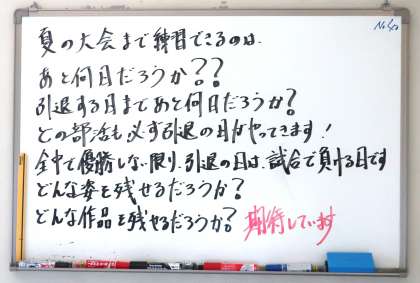 夏の大会まで練習できるのは、
あと何日だろうか??
引退する日まであと何日だろうか?
どの部活も必ず引退の日がやってきます!
全中で優勝しない限り、引退の日は、試合で負ける日です
どんな姿を残せるだろうか?
どんな作品を残せるだろうか? 期待しています